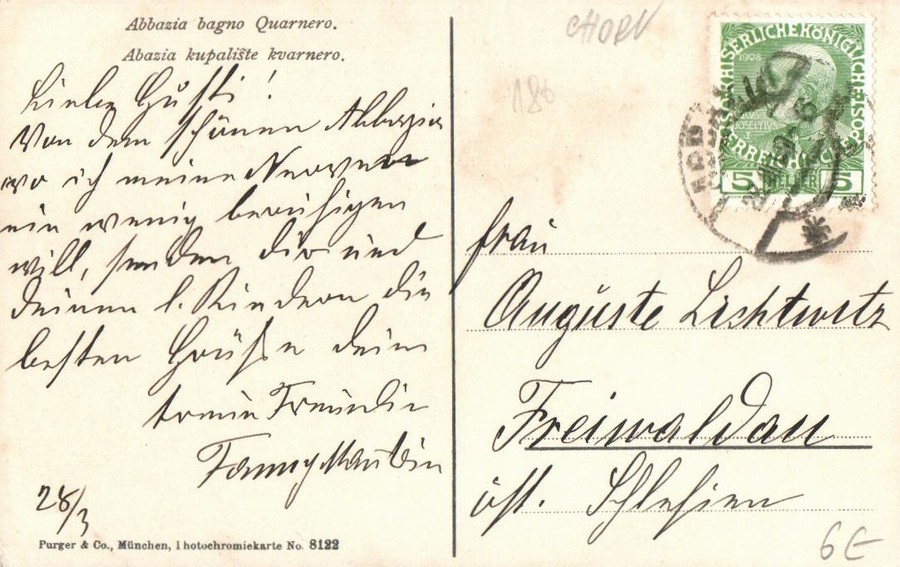 Abbazia bagno Quarnero.
Abazia kupalište kvarnero.
Liebe Gusti!
Von dem schönen Abbazia
wo ich meine Nerven
ein wenig beruhigen
will, senden dir und
deinen l. Kindern die
besten Grüße deine
treue Freundin
Fanny
28/3
Purger & Co., München, Photochromiekarte No. 8122
CHORV
186
KAISERLICHE KÖNIGLICHE
ÖSTERREICHISCHE
1908
5 HELLER 5
ABBAZIA
Frau
Auguste Lichtwitz
Freiwaldau
öst. Schlesien
6E